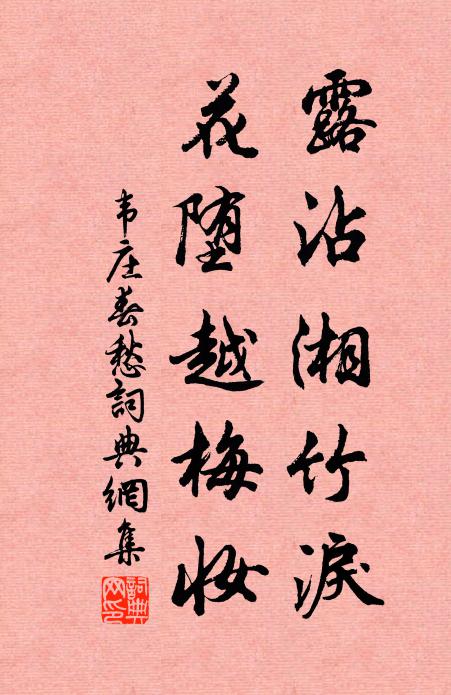 露沾湘竹淚
花堕越梅妝
韦庄春愁詞典網集
詞典网印